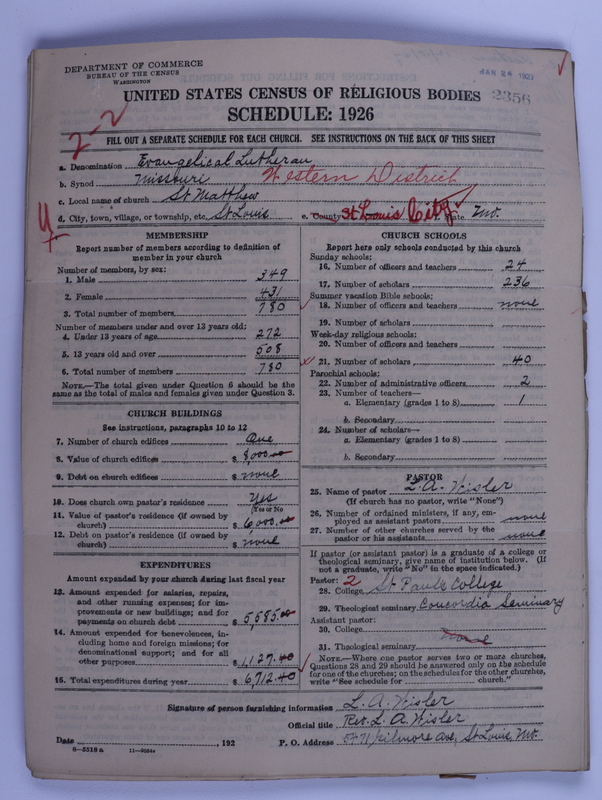 DEPARTMENT OF COMMERCE
BUREAU OF THE CENSUS
WASHINGTON
2356
UNITED STATES CENSUS OF RELIGIOUS BODIES
SCHEDULE: 1926
2-2
FILL OUT A SEPARATE SCHEDULE FOR EACH CHURCH. SEE INSTRUCTIONS ON THE BACK OF THIS SHEET
a. Denomination Evangelical Lutheran
b. Synod Missouri Western District
c. Local name of church St Matthew
d. City, town, village, or township, etc. St Louis e. County St Louis City State Mo.
MEMBERSHIP
Report number of members according to definition of
member in your church
Number of members, by sex:
1. Male 349
2. Female 431
3. Total number of members 780
Number of members under and over 13 years old:
4. Under 13 years of age 272
5. 13 years old and over 508
6. Total number of members 780
NOTE.—The total given under Question 6 should be the
same as the total of males and females given under Question 3.
CHURCH BUILDINGS
See instructions, paragraphs 10 to 12
7. Number of church edifices One
8. Value of church edifices $ 8,000.00
9. Debt on church edifices $ none
10. Does church own pastor's residence Yes
(Yes or No
11. Value of pastor's residence (if owned by
church) $ 6,000.00
12. Debt on pastor's residence (if owned by
church) $ none
EXPENDITURES
Amount expended by your church during last fiscal year
13. Amount expended for salaries, repairs,
and other running expenses; for im-
provements or new buildings; and for
payments on church debt $ 5,585.00
14. Amount expended for benevolences, in-
cluding home and foreign missions; for
denominational support; and for all
other purposes $ 1,127.40
15. Total expenditures during year $ 6,712.40
CHURCH SCHOOLS
Report here only schools conducted by this church
Sunday schools:
16. Number of officers and teachers 24
17. Number of scholars 236
Summer vacation Bible schools:
18. Number of officers and teachers none
19. Number of scholars
Week-day religious schools:
20. Number of officers and teachers
21. Number of scholars 40
Parochial schools:
22. Number of administrative officers 2
23. Number of teachers—
a. Elementary (grades 1 to 8) 1
b. Secondary
24. Number of scholars—
a. Elementary (grades 1 to 8)
b. Secondary
PASTOR
25. Name of pastor L. A. Wisler
(If church has no pastor, write "None")
26. Number of ordained ministers, if any, em-
ployed as assistant pastors none
27. Number of other churches served by the
pastor or his assistants none
If pastor (or assistant pastor) is a graduate of a college or
theological seminary, give name of institution below. (If
not a graduate, write "No" in the space indicated.)
Pastor: 2
28. College St Paul's College
29. Theological seminary Concordia Seminary
Assistant pastor:
30. College
none
31. Theological seminary
NOTE.—Where one pastor serves two or more churches,
Questions 28 and 29 should be answered only on the schedule
for one of the churches; on the schedules for the other churches,
write "See schedule for church."
Signature of person furnishing information L. A. Wisler
Official title Rev. L. A. Wisler
Date , 192 P. O. Address 5471 Gilmore Ave, St Louis, Mo.
8—5518a 11—9084